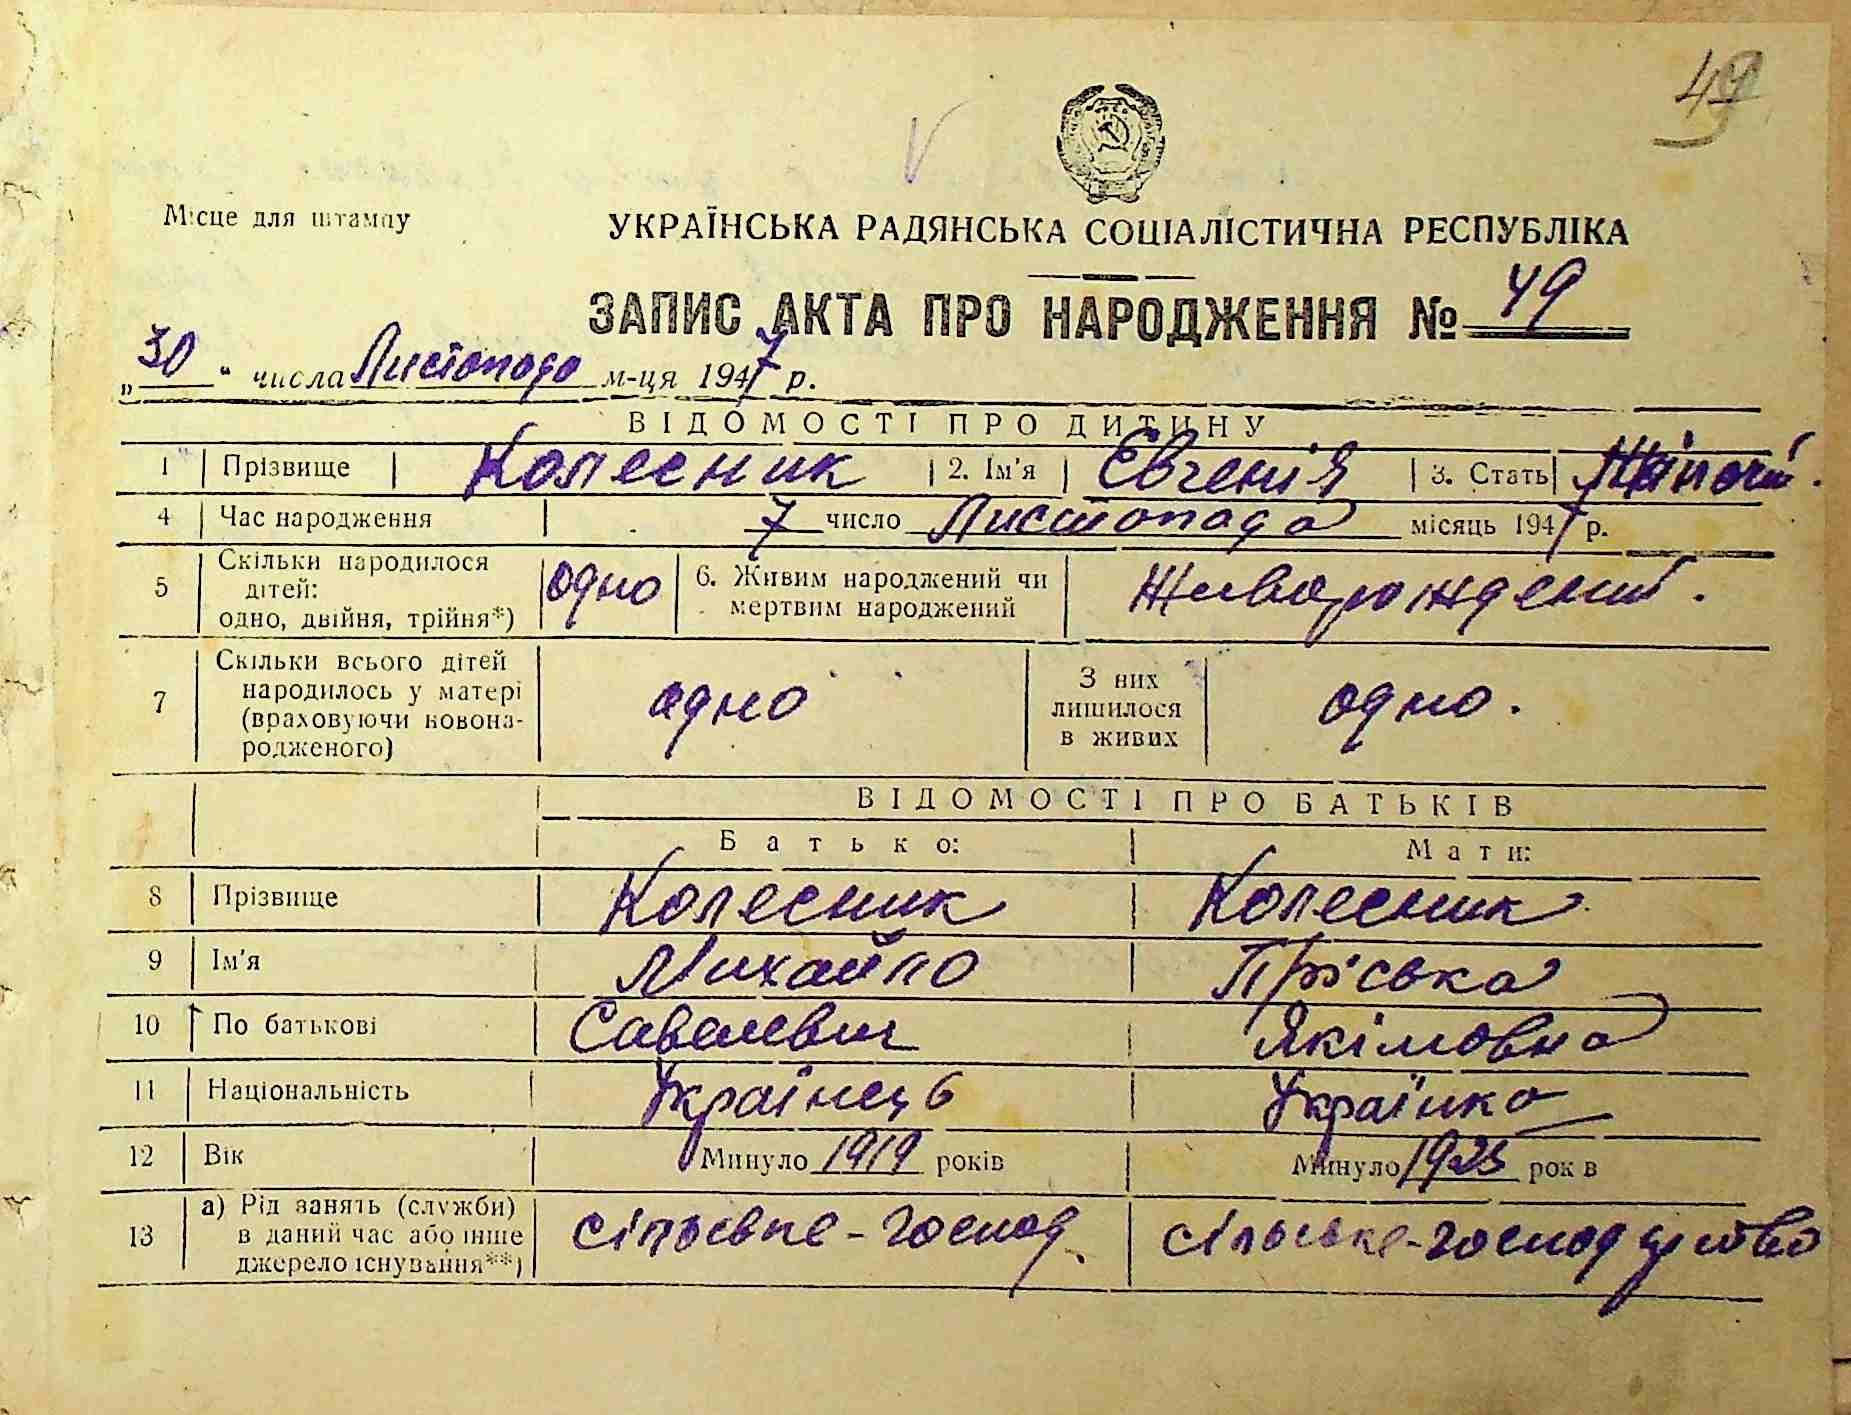 49
Місце для штампу
УКРАЇНСЬКА РАДЯНСЬКА СОЦІАЛІСТИЧНА РЕСПУБЛІКА
ЗАПИС АКТА ПРО НАРОДЖЕННЯ № 49
„30“ числа Листопада м-ця 1947 р.
ВІДОМОСТІ ПРО ДИТИНУ
1 Прізвище Колесник 2. Ім'я Євгенія 3. Стать
4 Час народження 7 число Листопада місяць 1947 р.
5 Скільки народилося дітей: одно, двійня, трійня*) одно 6. Живим народжений чи мертвим народжений Живорождений.
7 Скільки всього дітей народилось у матері (враховуючи новонародженого) одно З них лишилося в живих одно.
ВІДОМОСТІ ПРО БАТЬКІВ
Батько: Мати:
8 Прізвище Колесник Колесник
9 Ім'я Михайло Пріська
10 По батькові Савелевич Якімовна
11 Національність Українець Українка
12 Вік Минуло 1919 років Минуло 1923 рок в
13 а) Рід занять (служби) в даний час або інше джерело існування**) сільське-господ. сільське-господарство